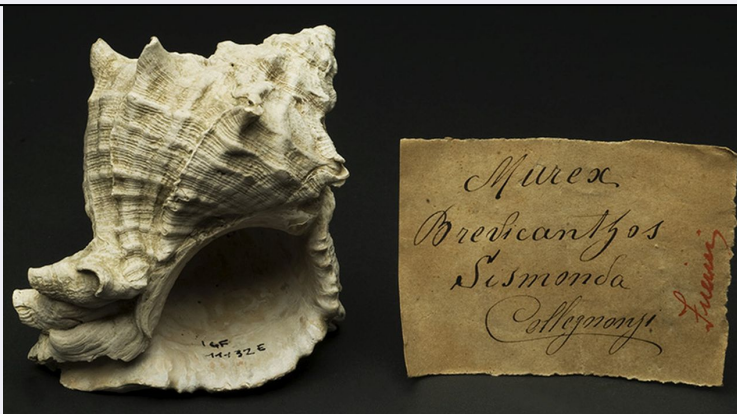 IGF
11132E
Murex
Brevicanthos
Sismonda
Collegnonji